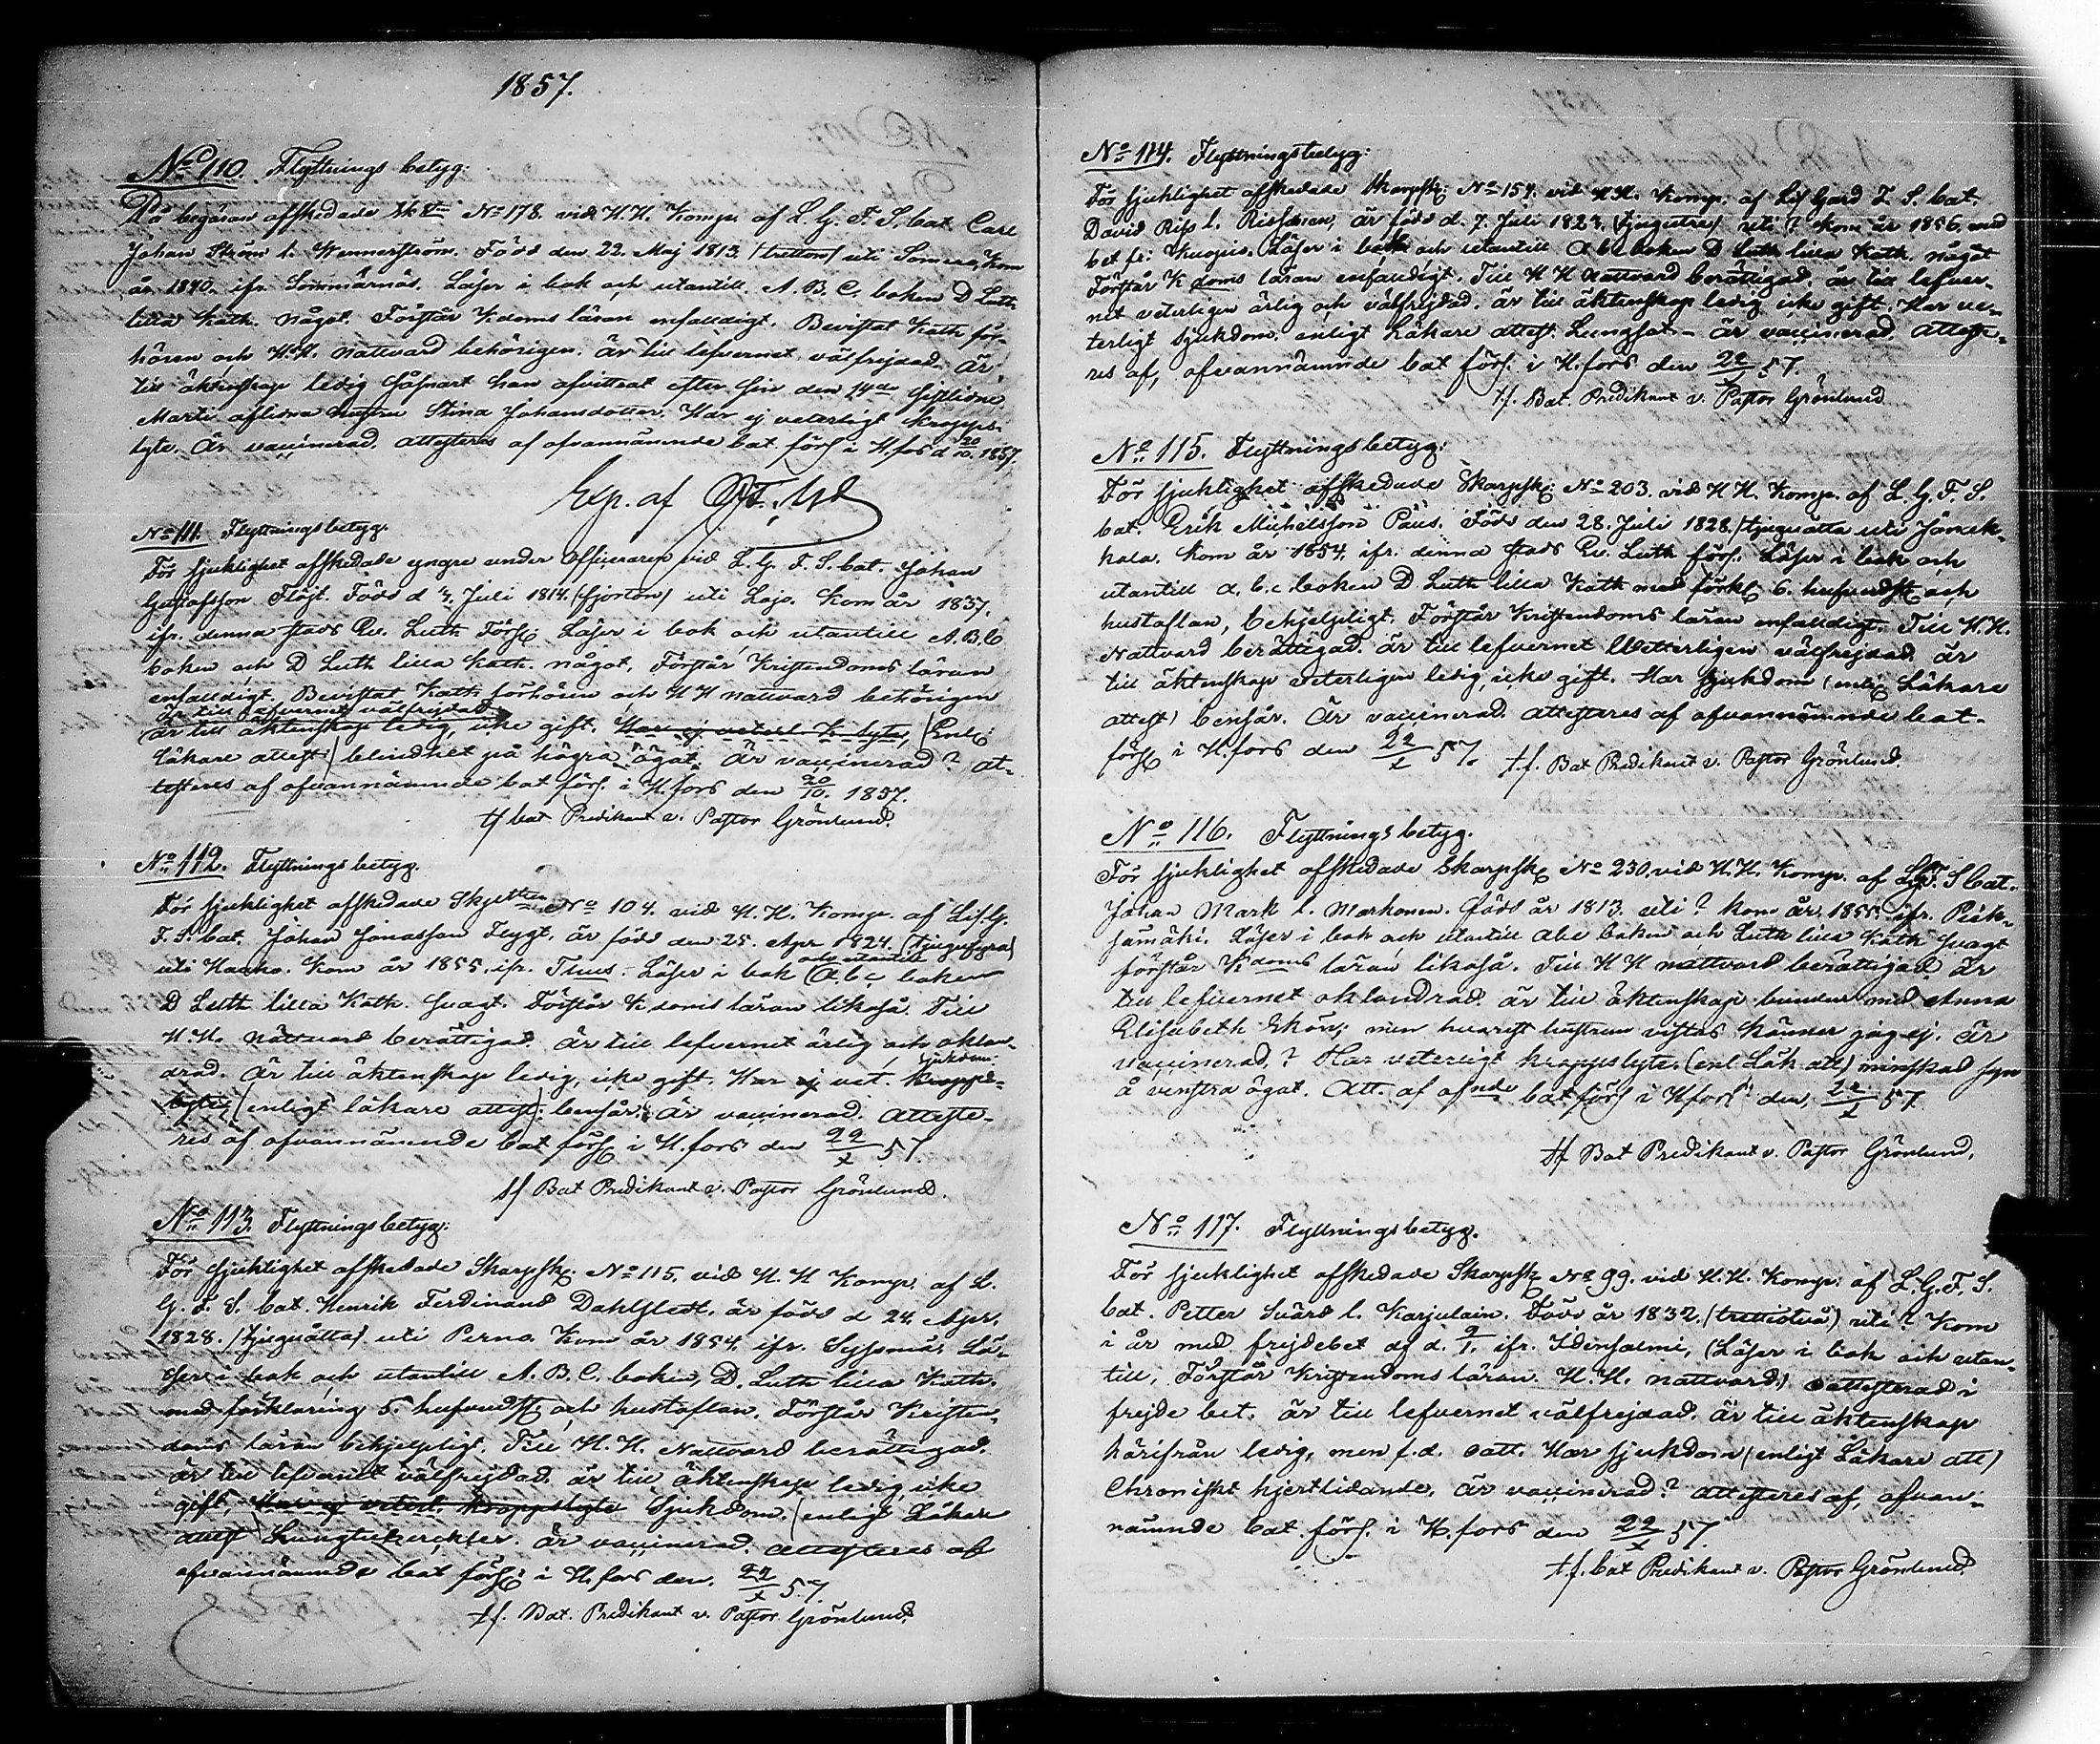 1857.
No 110. Flyttnings betyg:
På begäran afskedade Sk No 178. vid H.H. Komp. af L. G. F. S. bat. Carl
Johan Ström l. Wennerström. Född den 22. Maj 1813. (tretton) uti Somero, kom
år 1840. ifr. Sommärnäs. Läser i bok och utantill A. B. C. boken D Luth.
lilla Kath. något. Förstår K.doms läran enfaldigt. Bevistat Kath. för-
hören och H.H. nattvard behörigen. är till lefvernet välfrejdad. Är,
till äktenskap ledig såsnart han afvittrat efter sin den 14de sistlidne
Martii aflidna hustru Stina Johansdotter. Har ej veterligt kropps-
lyte. Är vaccinerad. attesteras af ofvannämnde bat. förs. i H.fors d 20/10. 1857.
Exp. af
No 111. Flyttningsbetyg.
För sjuklighet afskedade yngre under officeraren vid L. G. F. S. bat. Johan
Gustafsson Flöjt. Född d 4. Juli 1814. (fjorton) uti Lojo. Kom år 1837.
ifr. denna stads Ev. Luth. Förs. Läser i bok och utantill A. B. C
boken och D Luth lilla Kath. något, Förstår Kristendoms läran
enfaldigt. Bevistat Kath. förhören och H H nattvard behörigen
är till lefvernet välfrejdad
är till äktenskap ledig, icke gift. Har ej veterl. K. lyte, (Enl.
Läkare attest) blindhet på högra ögat. Är vaccinerad? at-
testeres af ofvannämnde bat förs. i H.fors den 20/10. 1857.
tf bat Predikant v. Pastor Grönlund.
No 112. Flyttnings betyg.
För sjuklighet afskedade Skytten No 104. vid H. H. Komp. af Lif G.
F. S. bat. Johan Jonasson Flygt, är född den 25. Apr 1824. (tjugufyra)
och utantill
uti Hauho. Kom år 1855. ifr. Tuus. Läser i bok a.b.c. boken
D Luth lilla Kath. svagt. Förstår K doms läran likaså. Till
H.H. Nattvard berättigad. är till lefvernet ärlig och oklan-
drad. Är till äktenskap ledig, icke gift. Har ej vet. kropps-
sjukdom
lyte, (enligt läkare attest) bensår. är vaccinerad. atteste-
res af ofvannämnde bat förs. i H.fors den 22/x 57.
tf Bat Predikant v. Pastor Grönlund.
No 113. Flyttningsbetyg:
För sjuklighet afskedade Skarpsk. No 115. vid H. H Komp. af L.
G. F. S. bat. Henrik Ferdinand Dahlstedt, är född d 24. Apr.
1828. (tjuguåtta) uti Perno. Kom år 1854. ifr. Lä-
ser i bok och utantill A. B. C. boken, D. Luth lilla Kath.
med förklaring 5. hufvudst. och hustaflan. Förstår Kristen-
doms läran behjelpligt. Till H. H. Nattvard berättigad.
är till lefvernet välfrejdad. är till äktenskap ledig, icke
gift, Har ej veterl. kroppslyte Sjukdom. (enligt Läkare
attest) är vaccinerad. attesteres af
ofvannämnde bat förs. i H.fors den. 22/x 57.
tf. Bat. Predikant v. Pastor Grönlund.
No 114. Flyttningsbetyg:
För sjuklighet afskedade Skarpsk. No 154. vid H.H. Komp. af Lif Gard F. S. bat.
David Riss l. Rissanen, är född d. 7. Juli 1823. (tjugutre) uti? Kom år 1856. med
bet fr. Kuopio. Läser i bok och utantill a b c boken D Luth lilla Kath. något
Förstår K doms läran enfaldigt. Till H H nattvard berättigad. är till lefver-
net veterligen ärlig och välfrejdad. är till äktenskap ledig icke gift. Har ve-
terligt sjukdom. enligt Läkare attest. Lungsot – är vaccinerad. atteste-
res af, ofvannämnde bat förs. i H.fors den 22/x 57.
tf. Bat. Predikant v. Pastor Grönlund
No 115. Flyttningsbetyg:
För sjuklighet afskedade Skarpsk. No 203. vid H H. Komp. af L. G. F. S.
bat. Erik Michelsson Paus. Född den 28. Juli 1828. (tjuguåtta uti Janak-
kala. Kom år 1854. ifr. denna stads Ev. Luth förs. Läser i bok och
utantill a. b. c. boken D Luth lilla Kath med förkl. 6. hufvudst. och
hustaflan, behjelpligt. Förstår Kristendoms läran enfaldigt. Till H.H.
Nattvard berättigad. är till lefvernet Wetterligen välfrejdad. är
till äktenskap veterligen ledig, icke gift. Har sjukdom (enlig Läkare
attest) bensår. Är vaccinerad. attesteres af ofvannämnde bat-
förs. i H.fors den 22/x 57. tf. Bat Predikant v. Pastor Grönlund.
No 116. Flyttnings betyg.
För sjuklighet afskedade Skarpsk. No 230. vid H.H. Komp. af L.G.F. S bat.
Johan Mark l. Markonen. född år 1813. uti? kom år 1855. ifr. Piek-
sämäki. Läser i bok och utantill abc boken och Luth lilla Kath svagt
förstår K doms läran likaså. Till H H nattvard berättigad. är
till lefvernet oklandrad. är till äktenskap bunden med Anna
Elisabeth Ekön; men hvarest hustrun vistas känner jag ej. är
vaccinerad.? Har veterligt kroppslyte. (enl Läk. att) minskad syn
å venstra ögat. Att. af ofnde bat. förs i H.fors den, 22/x 57.
tf Bat Predikant v. Pastor Grönlund,
No 117. Flyttningsbetyg.
För sjuklighet afskedade Skarpsk No 99. vid H. H. Komp. af L. G. F. S.
bat. Petter Svärd l. Karjulain. Född år 1832. (trettiotvå) uti? Kom
i år med frejdebet af d. 9/1. ifr. Idensalmi, (Läser i bok och utan-
till, Förstår Kristendoms läran. H. H. nattvard) oattesterad i
frejde bet. är till lefvernet välfrejdad. är till äktenskap
härifrån ledig, men f.d. oatt. Har sjukdom (enligt Läkare att)
Chroniskt hjertlidande, är vaccinerad? attesteres af, ofvan-
nämnde bat. förs. i H.fors den 22/x 57.
t.f. bat Predikant v. Pastor Grönlund.